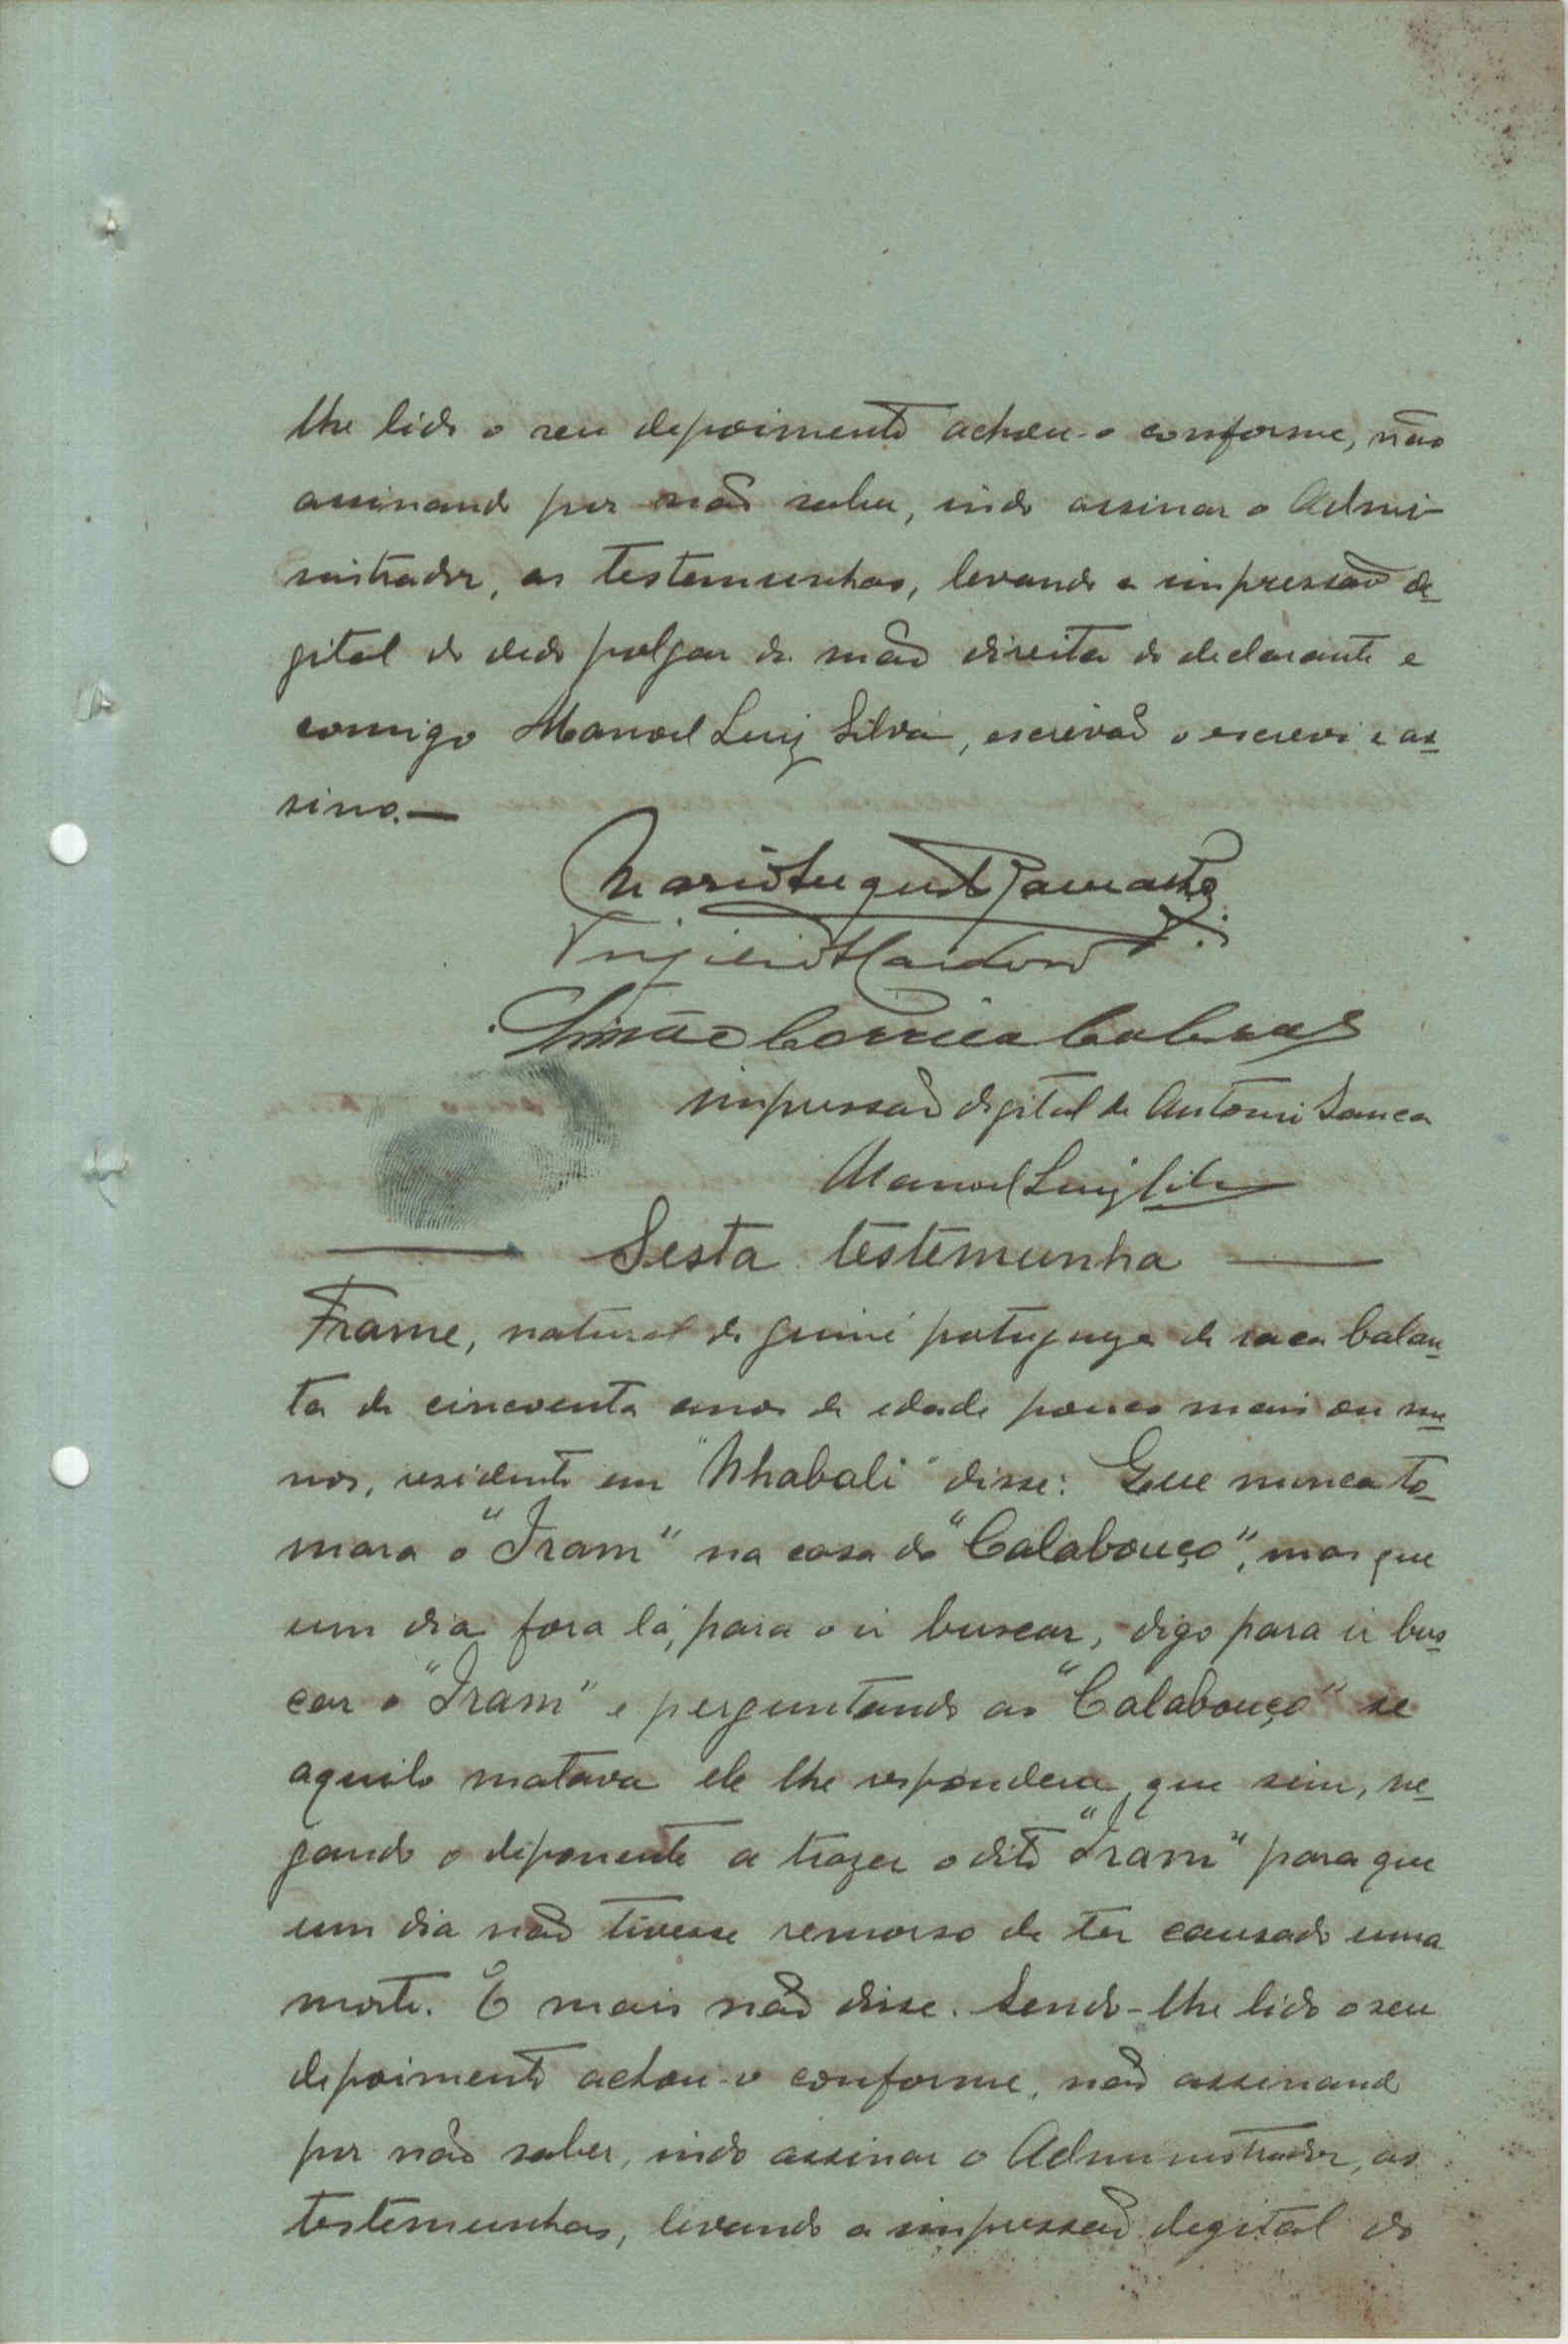 lhe lido o seu depoimento achou-o conforme, não
assinando por não saber, indo assinar o Admi-
nistrador, as testemunhas, levando a impressão de-
gital do dedo polgar da mão direita do declarante e
comigo Manoel Luiz Silva, escrivão o escrevi e as-
sino.—
Simão Correia Cabral
impressão digital de Antoni Sanca
Manoel Luiz Silva
— Sesta testemunha —
Frame, natural da guiné portugueza de raça balan-
ta de cincoenta anos de edade pouco mais ou me-
nos, residente em "Nhabali" disse: Que nunca to-
mara o "Iram" na casa do "Calabouço", mas que
um dia fora lá, para o ir buscar, digo para ir bus-
car o "Iram" e perguntando ao "Calabouço" se
aquilo matava ele lhe respondera, que sim, ne-
gando o deponente a trazer o dito "Iram" para que
um dia não tivesse remorso de ter causado uma
morte. E mais não disse. Sendo-lhe lido o seu
depoimento achou-o conforme, não assinand
por não saber, indo assinar o Administrador, as
testemunhas, levando a impressão degital do